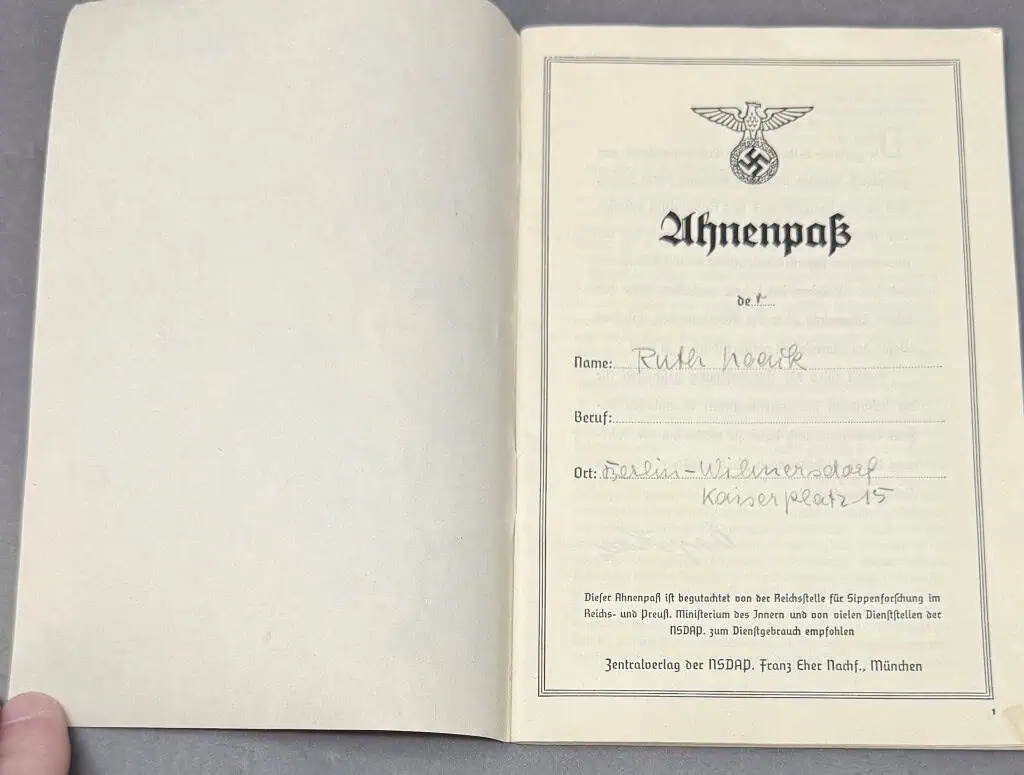 Ahnenpaß
der
Name: Ruth
Beruf:
Ort: Berlin-Wilmersdorf
Kaiserplatz 15
Dieser Ahnenpaß ist begutachtet von der Reichsstelle für Sippenforschung im
Reichs- und Preuß. Ministerium des Innern und von vielen Dienststellen der
NSDAP. zum Dienstgebrauch empfohlen
Zentralverlag der NSDAP. Franz Eher Nachf., München
1